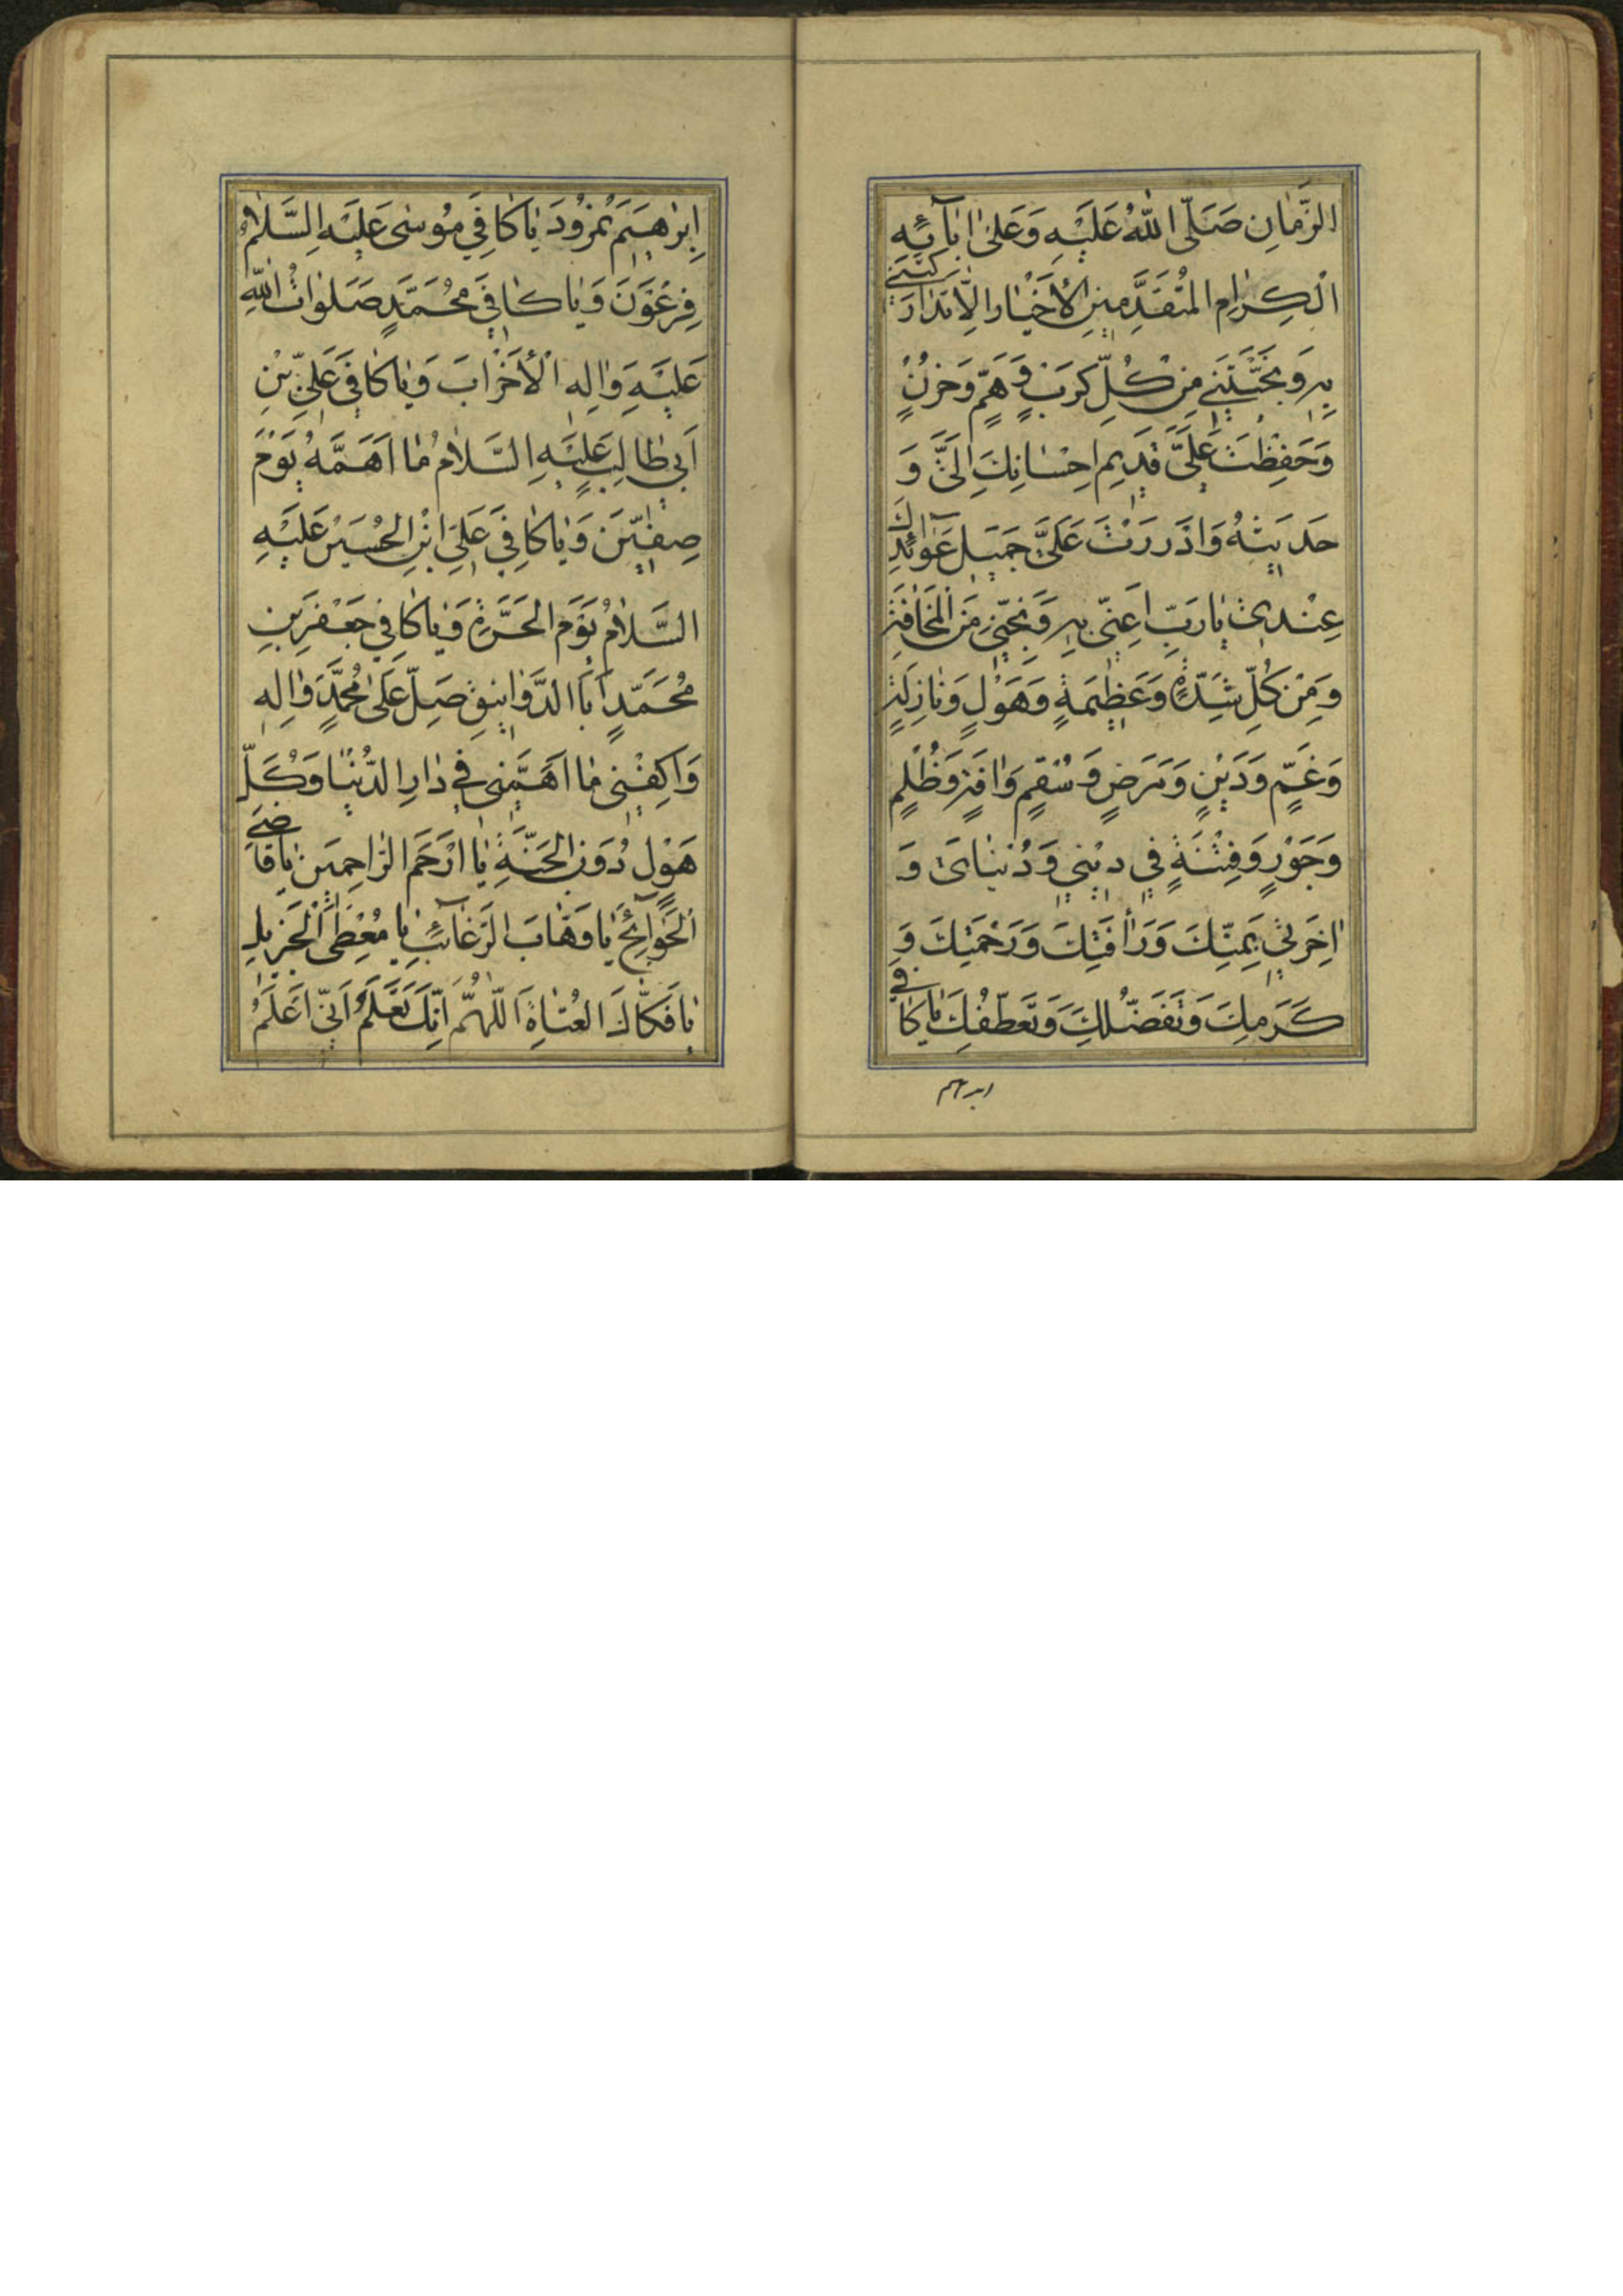 الزَّمٰانِ صَلَّى اللّٰهُ عَلَيْهِ وَعَلىٰ اٰبٰآئِهِ
الْكِرٰامِ الْمُتَقَدِّمينِ الْأَخْيٰارِ الْاَبْرٰارَ
بِهِ وَنَجَّيْتَنى مِنْ كُلِّ كَرْبٍ وَهَمٍّ وَحُزْنٍ
وَحَفِظْتَ عَلَيَّ قَديمِ اِحْسٰانِكَ اِلَيَّ وَ
حَديثَهُ وَاَدْرَرْتَ عَلَيَّ جَميلَ عَوٰآئِدِكَ
عِنْدى يٰا رَبِّ اَعِنّى بِهِ وَنَجِّنى مِنَ الْمَخٰافَةِ
وَمِنْ كُلِّ شِدَّةٍ وَعَظيمَةٍ وَهَوْلٍ وَنٰازِلَةٍ
وَغَمٍّ وَدَيْنٍ وَمَرَضٍ وَسُقْمٍ وَاٰفَةٍ وَظُلْمٍ
وَجَوْرٍ وَفِتْنَةٍ في دينى وَدُنْيٰاىَ وَ
اٰخِرَتى بِمَنِّكَ وَرَأْفَتِكَ وَرَحْمَتِكَ وَ
كَرَمِكَ وَتَفَضُّلِكَ وَتَعَطُّفِكَ يٰا كٰافى
ابرهيم
اِبْرٰهيمَ نُمْرُودَ يٰا كٰافِيَ مُوسٰى عَلَيْهِ السَّلٰامُ
فِرْعَوْنَ وَيٰا كٰافِيَ مُحَمَّدٍ صَلَوٰاتُ اللّٰهِ
عَلَيْهِ وَاٰلِهِ الْأَحْزٰابَ وَيٰا كٰافِيَ عَلِيِّ بْنِ
اَبى طٰالِبٍ عَلَيْهِ السَّلٰامُ مٰا اَهَمَّهُ يَوْمَ
صِفّينَ وَيٰا كٰافِيَ عَلِيِّ ابْنِ الْحُسَيْنِ عَلَيْهِ
السَّلٰامُ يَوْمَ الْحَرَّةِ وَيٰا كٰافِيَ جَعْفَرِ بْنِ
مُحَمَّدٍ اَبَا الدَّوٰانيقِ صَلِّ عَلىٰ مُحَمَّدٍ وَاٰلِهِ
وَاكْفِنى مٰا اَهَمَّنى في دٰارِ الدُّنْيٰا وَكُلَّ
هَوْلٍ دُونَ الْجَنَّةِ يٰا اَرْحَمَ الرّٰاحِمينَ يٰا قٰاضِىَ
الْحَوٰآئِجِ يٰا وَهّٰابَ الرَّغٰآئِبِ يٰا مُعْطِىَ الْجَزيلِ
يٰا فَكّٰاكَ الْعُنٰاةِ اَللّٰهُمَّ اِنَّكَ تَعْلَمُ اَنّى اَعْلَمُ